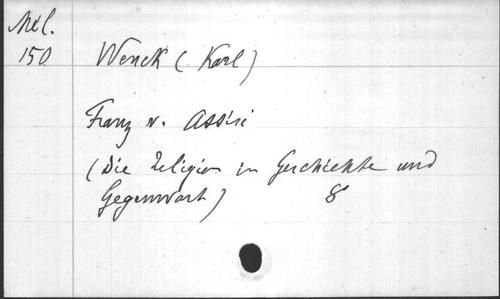 Mél.
150
Wenck (Karl)
Franz v. Assisi
(Die Religion in Geschichte und
Gegenwart) 8°